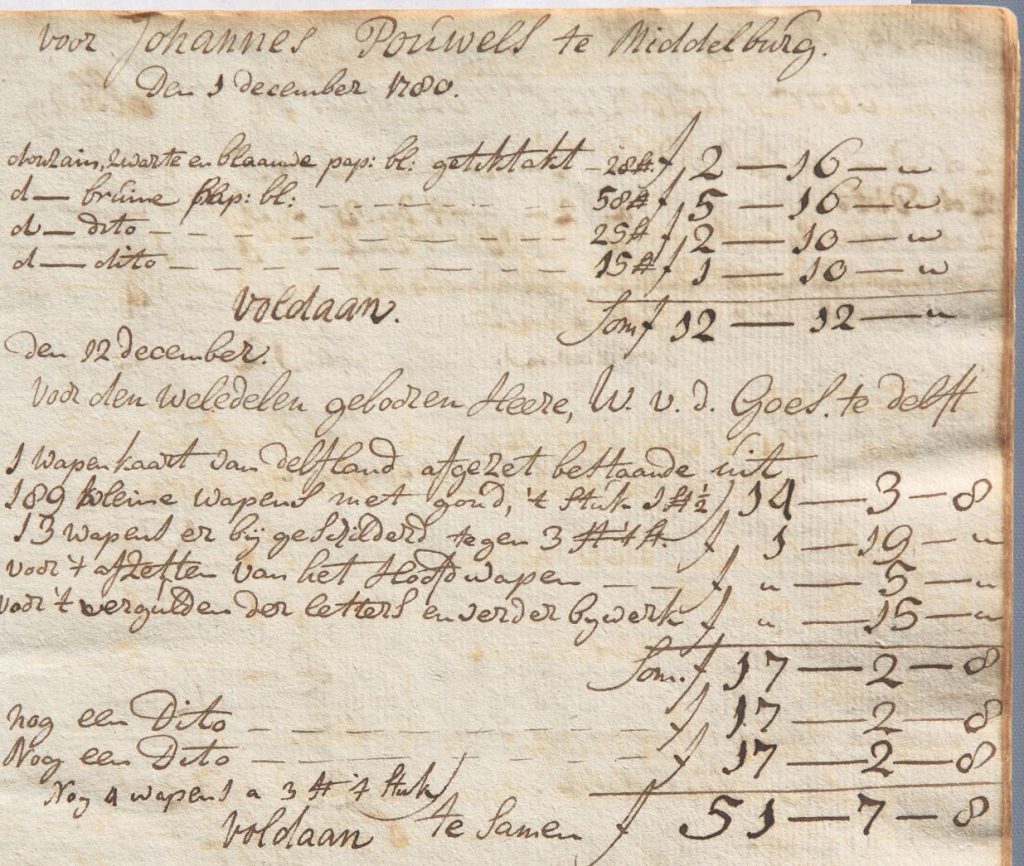 voor Johannes Pouwels te Middelburg.
Den 1 december 1780.
douzain, zwarte en blaauwe pap: bl: getiktakt - 28 st. f 2 — 16 — "
d — bruine pap: bl: - - - - - 58 st f 5 — 16 — "
d — dito - - - - - 25 st f 2 — 10 — "
d — dito - - - - - 15 st f 1 — 10 — "
voldaan. Som f 12 — 12 — "
den 12 december.
voor den weledelen geboren Heere, W. v. d. Goes. te delft
1 wapenkaart van delfland afgezet bestaande uit
189 kleine wapens met goud, 't stuk 1 st ½ f 14 — 3 — 8
13 wapens er bij geschilderd tegen 3 st 't st. f 1 — 19 — "
voor 't afzetten van het Hoofdwapen - - f " — 5 — "
voor 't vergulden der letters en verder bywerk f " — 15 — "
Som. f 17 — 2 — 8
nog een Dito - - - - - f 17 — 2 — 8
Nog een Dito - - - - - f 17 — 2 — 8
Nog 4 wapens a 3 st 't stuk
voldaan te samen f 51 — 7 — 8